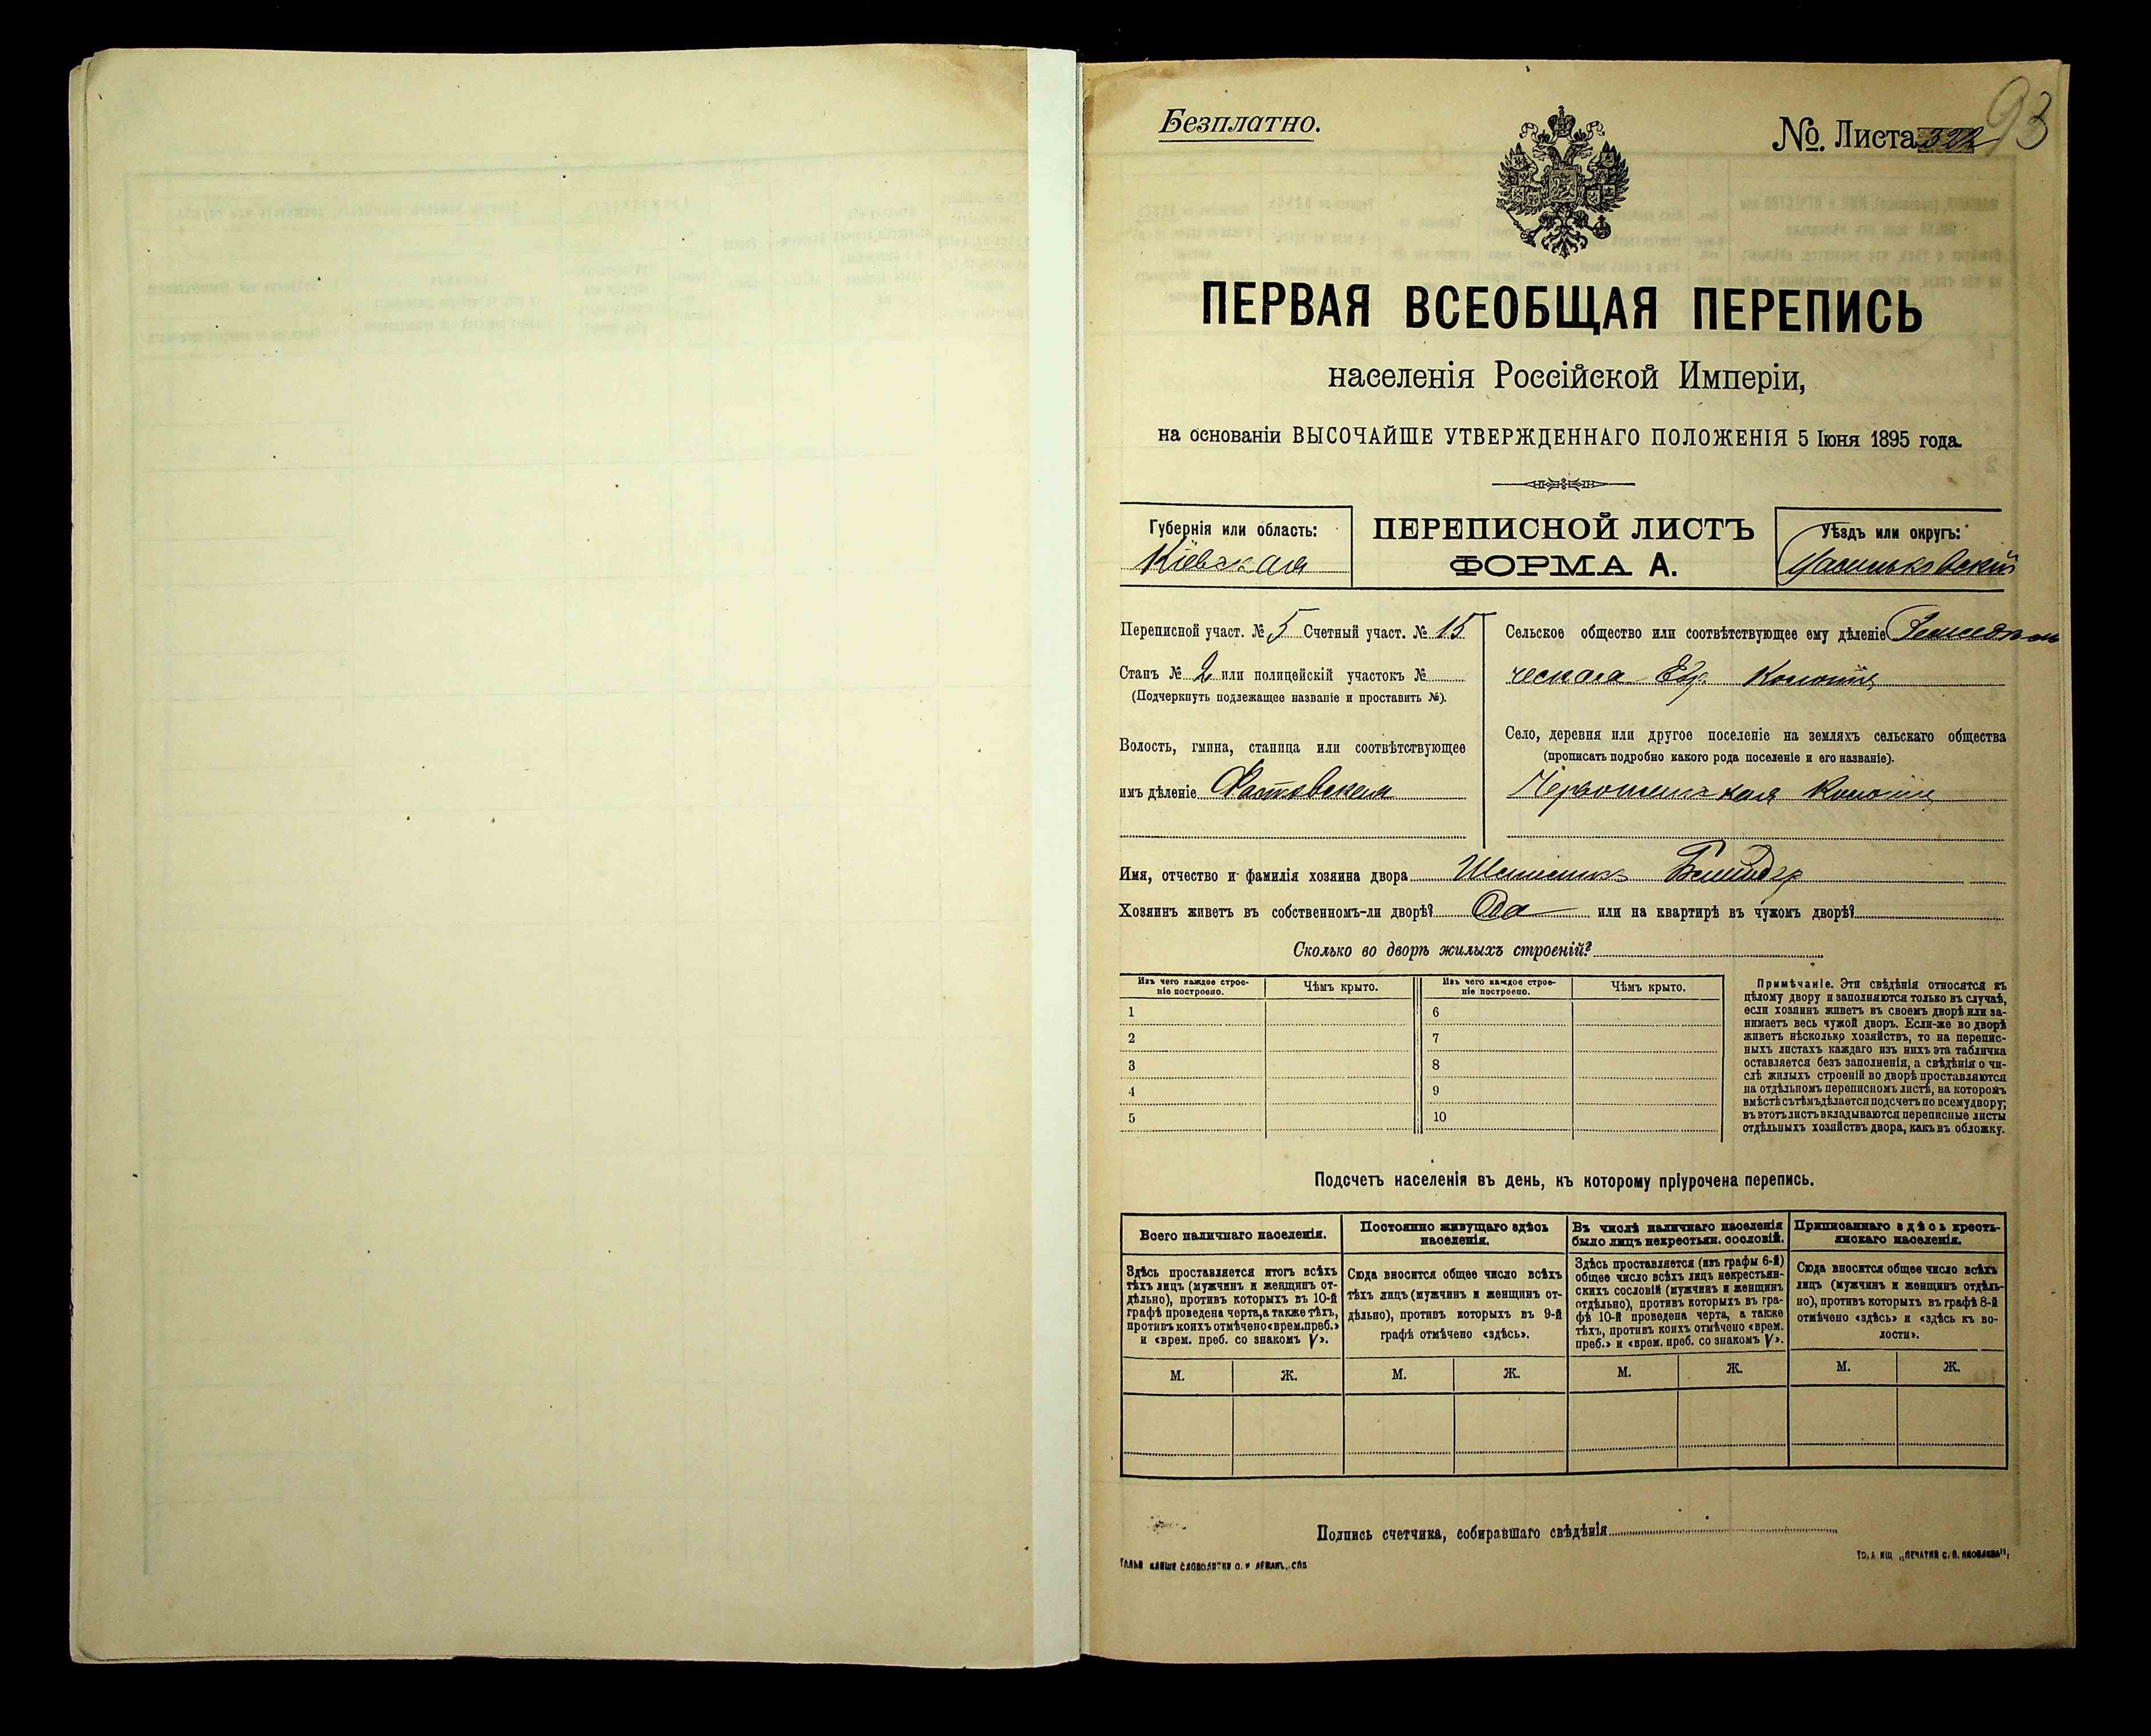 Безплатно.
№. Листа 322
93
ПЕРВАЯ ВСЕОБЩАЯ ПЕРЕПИСЬ
населенія Россійской Имперіи,
на основаніи ВЫСОЧАЙШЕ УТВЕРЖДЕННАГО ПОЛОЖЕНІЯ 5 Іюня 1895 года.
Губернія или область:
Кіевская
ПЕРЕПИСНОЙ ЛИСТЪ
ФОРМА А.
Уѣздъ или округъ:
Васильковскій
Переписной участ. № 5 Счетный участ. № 15
Станъ № 2 или полицейскій участокъ №
(Подчеркнуть подлежащее названіе и проставить №).
Волость, гмина, станица или соотвѣтствующее
имъ дѣленіе Фастовская
Сельское общество или соотвѣтствующее ему дѣленіе
ческага Евр. Колоніи
Село, деревня или другое поселеніе на земляхъ сельскаго общества
(прописать подробно какого рода поселеніе и его названіе).
Колонія
Имя, отчество и фамилія хозяина двора
Хозяинъ живетъ въ собственномъ-ли дворѣ? Да или на квартирѣ въ чужомъ дворѣ?
Сколько во дворѣ жилыхъ строеній?
Изъ чего каждое строе-
ніе построено.
Чѣмъ крыто.
Изъ чего каждое строе-
ніе построено.
Чѣмъ крыто.
1 6
2 7
3 8
4 9
5 10
Примѣчаніе. Эти свѣдѣнія относятся къ
цѣлому двору и заполняются только въ случаѣ,
если хозяинъ живетъ въ своемъ дворѣ или за-
нимаетъ весь чужой дворъ. Если-же во дворѣ
живетъ нѣсколько хозяйствъ, то на перепис-
ныхъ листахъ каждаго изъ нихъ эта табличка
оставляется безъ заполненія, а свѣдѣнія о чи-
слѣ жилыхъ строеній во дворѣ проставляются
на отдѣльномъ переписномъ листѣ, на которомъ
вмѣстѣ съ тѣмъ дѣлается подсчетъ по всему двору;
въ этотъ листъ вкладываются переписные листы
отдѣльныхъ хозяйствъ двора, какъ въ обложку.
Подсчетъ населенія въ день, къ которому пріурочена перепись.
Всего наличнаго населенія.
Здѣсь проставляется итогъ всѣхъ
тѣхъ лицъ (мужчинъ и женщинъ от-
дѣльно), противъ которыхъ въ 10-й
графѣ проведена черта, а также тѣхъ,
противъ коихъ отмѣчено «врем. преб.»
и «врем. преб. со знакомъ V».
Постоянно живущаго здѣсь
населенія.
Сюда вносится общее число всѣхъ
тѣхъ лицъ (мужчинъ и женщинъ от-
дѣльно), противъ которыхъ въ 9-й
графѣ отмѣчено «здѣсь».
Въ числѣ наличнаго населенія
было лицъ некрестьян. сословій.
Здѣсь проставляется (изъ графы 6-й)
общее число всѣхъ лицъ некрестьян-
скихъ сословій (мужчинъ и женщинъ
отдѣльно), противъ которыхъ въ гра-
фѣ 10-й проведена черта, а также
тѣхъ, противъ коихъ отмѣчено «врем.
преб.» и «врем. преб. со знакомъ V».
Приписаннаго здѣсь кресть-
янскаго населенія.
Сюда вносится общее число всѣхъ
лицъ (мужчинъ и женщинъ отдѣль-
но), противъ которыхъ въ графѣ 8-й
отмѣчено «здѣсь» и «здѣсь къ во-
лости».
М. Ж. М. Ж. М. Ж. М. Ж.
Подпись счетчика, собиравшаго свѣдѣнія